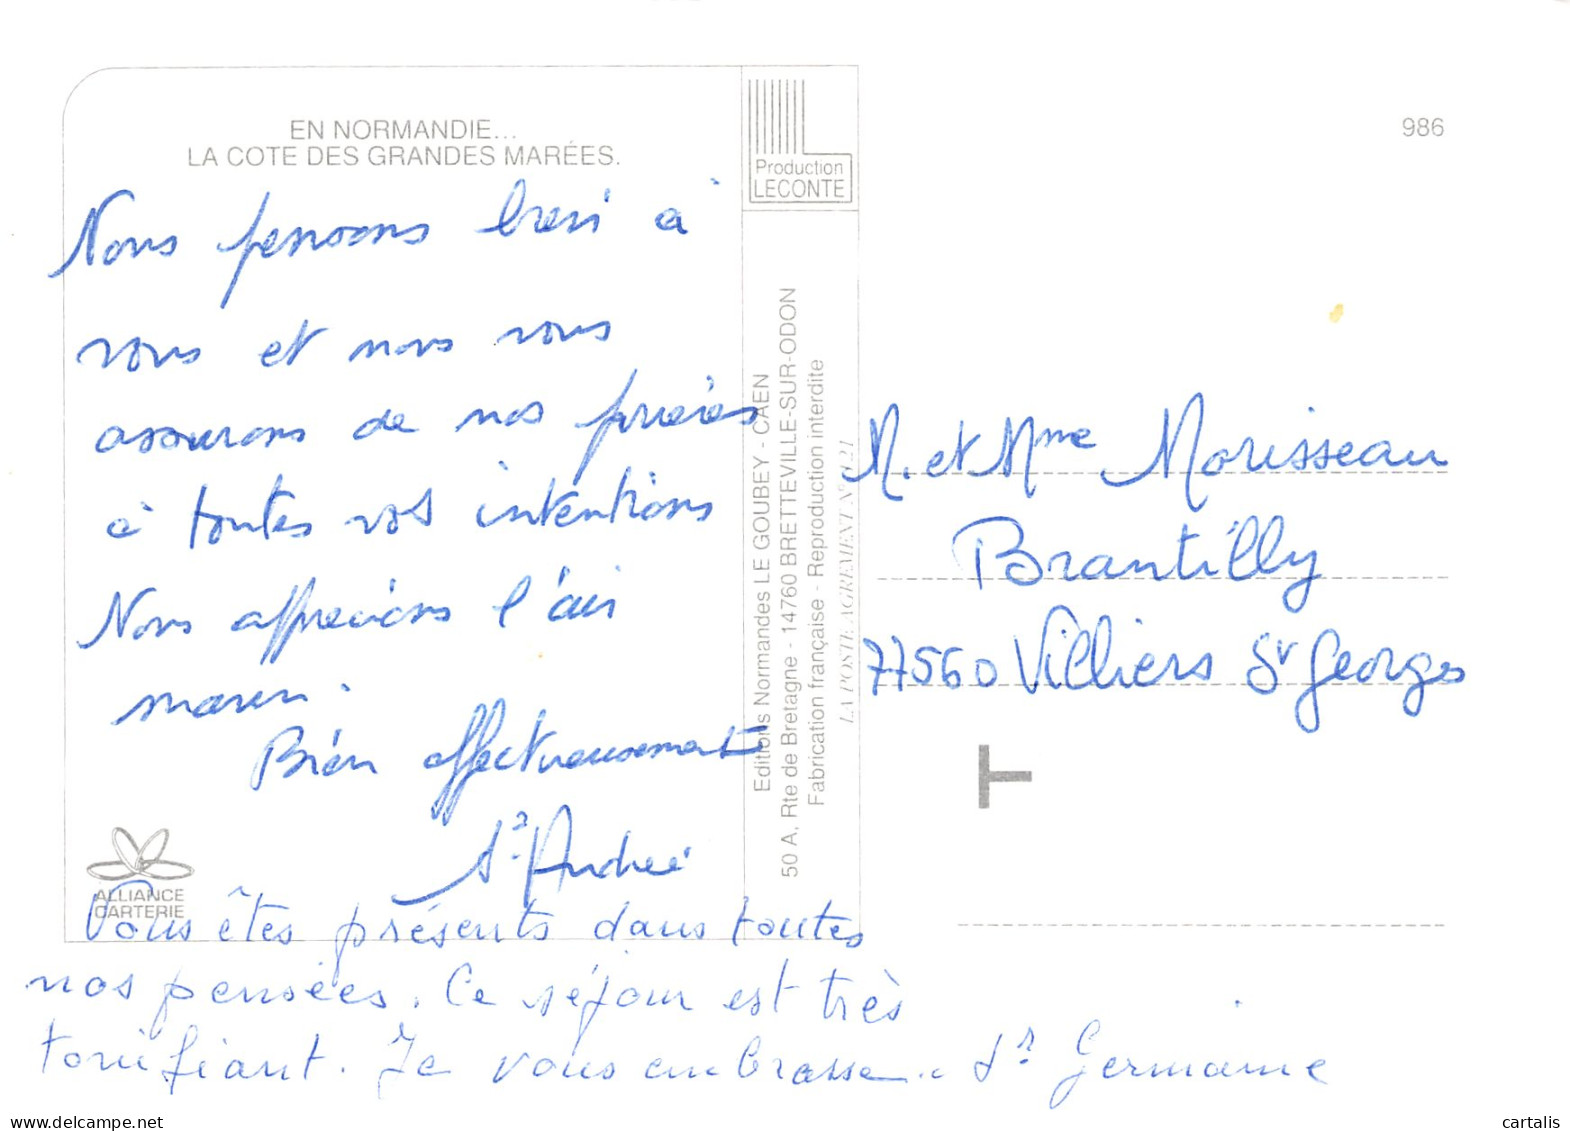 EN NORMANDIE...
LA COTE DES GRANDES MARÉES.
Nous pensons bien à
vous et nous vous
assurons de nos prières
à toutes vos intentions
Nous apprécions l'air
marin.
Bien affectueusement
Sr Andrée
Vous êtes présents dans toutes
nos pensées. Ce séjour est très
tonifiant. Je vous embrasse.. Sr Germaine
ALLIANCE
CARTERIE
Production
LECONTE
Editions Normandes LE GOUBEY - CAEN
50 A, Rte de Bretagne - 14760 BRETTEVILLE-SUR-ODON
Fabrication française - Reproduction interdite
LA POSTE AGREMENT N°
986
M. et Mme Morisseau
Brantilly
77560 Villiers St Georges
T
delcampe.net
cartalis